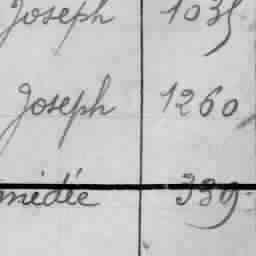 Joseph 1035
Joseph 1260
médée 339